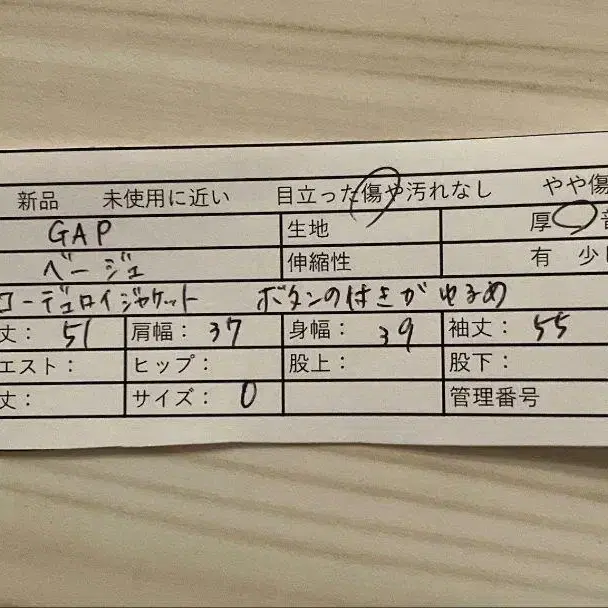 新品 未使用に近い 目立った傷や汚れなし やや傷
GAP 生地 厚
ベージュ 伸縮性 有 少し
コーデュロイジャケット ボタンの付きがゆるめ
丈: 51 肩幅: 37 身幅: 39 袖丈: 55
エスト: ヒップ: 股上: 股下:
丈: サイズ: 0 管理番号